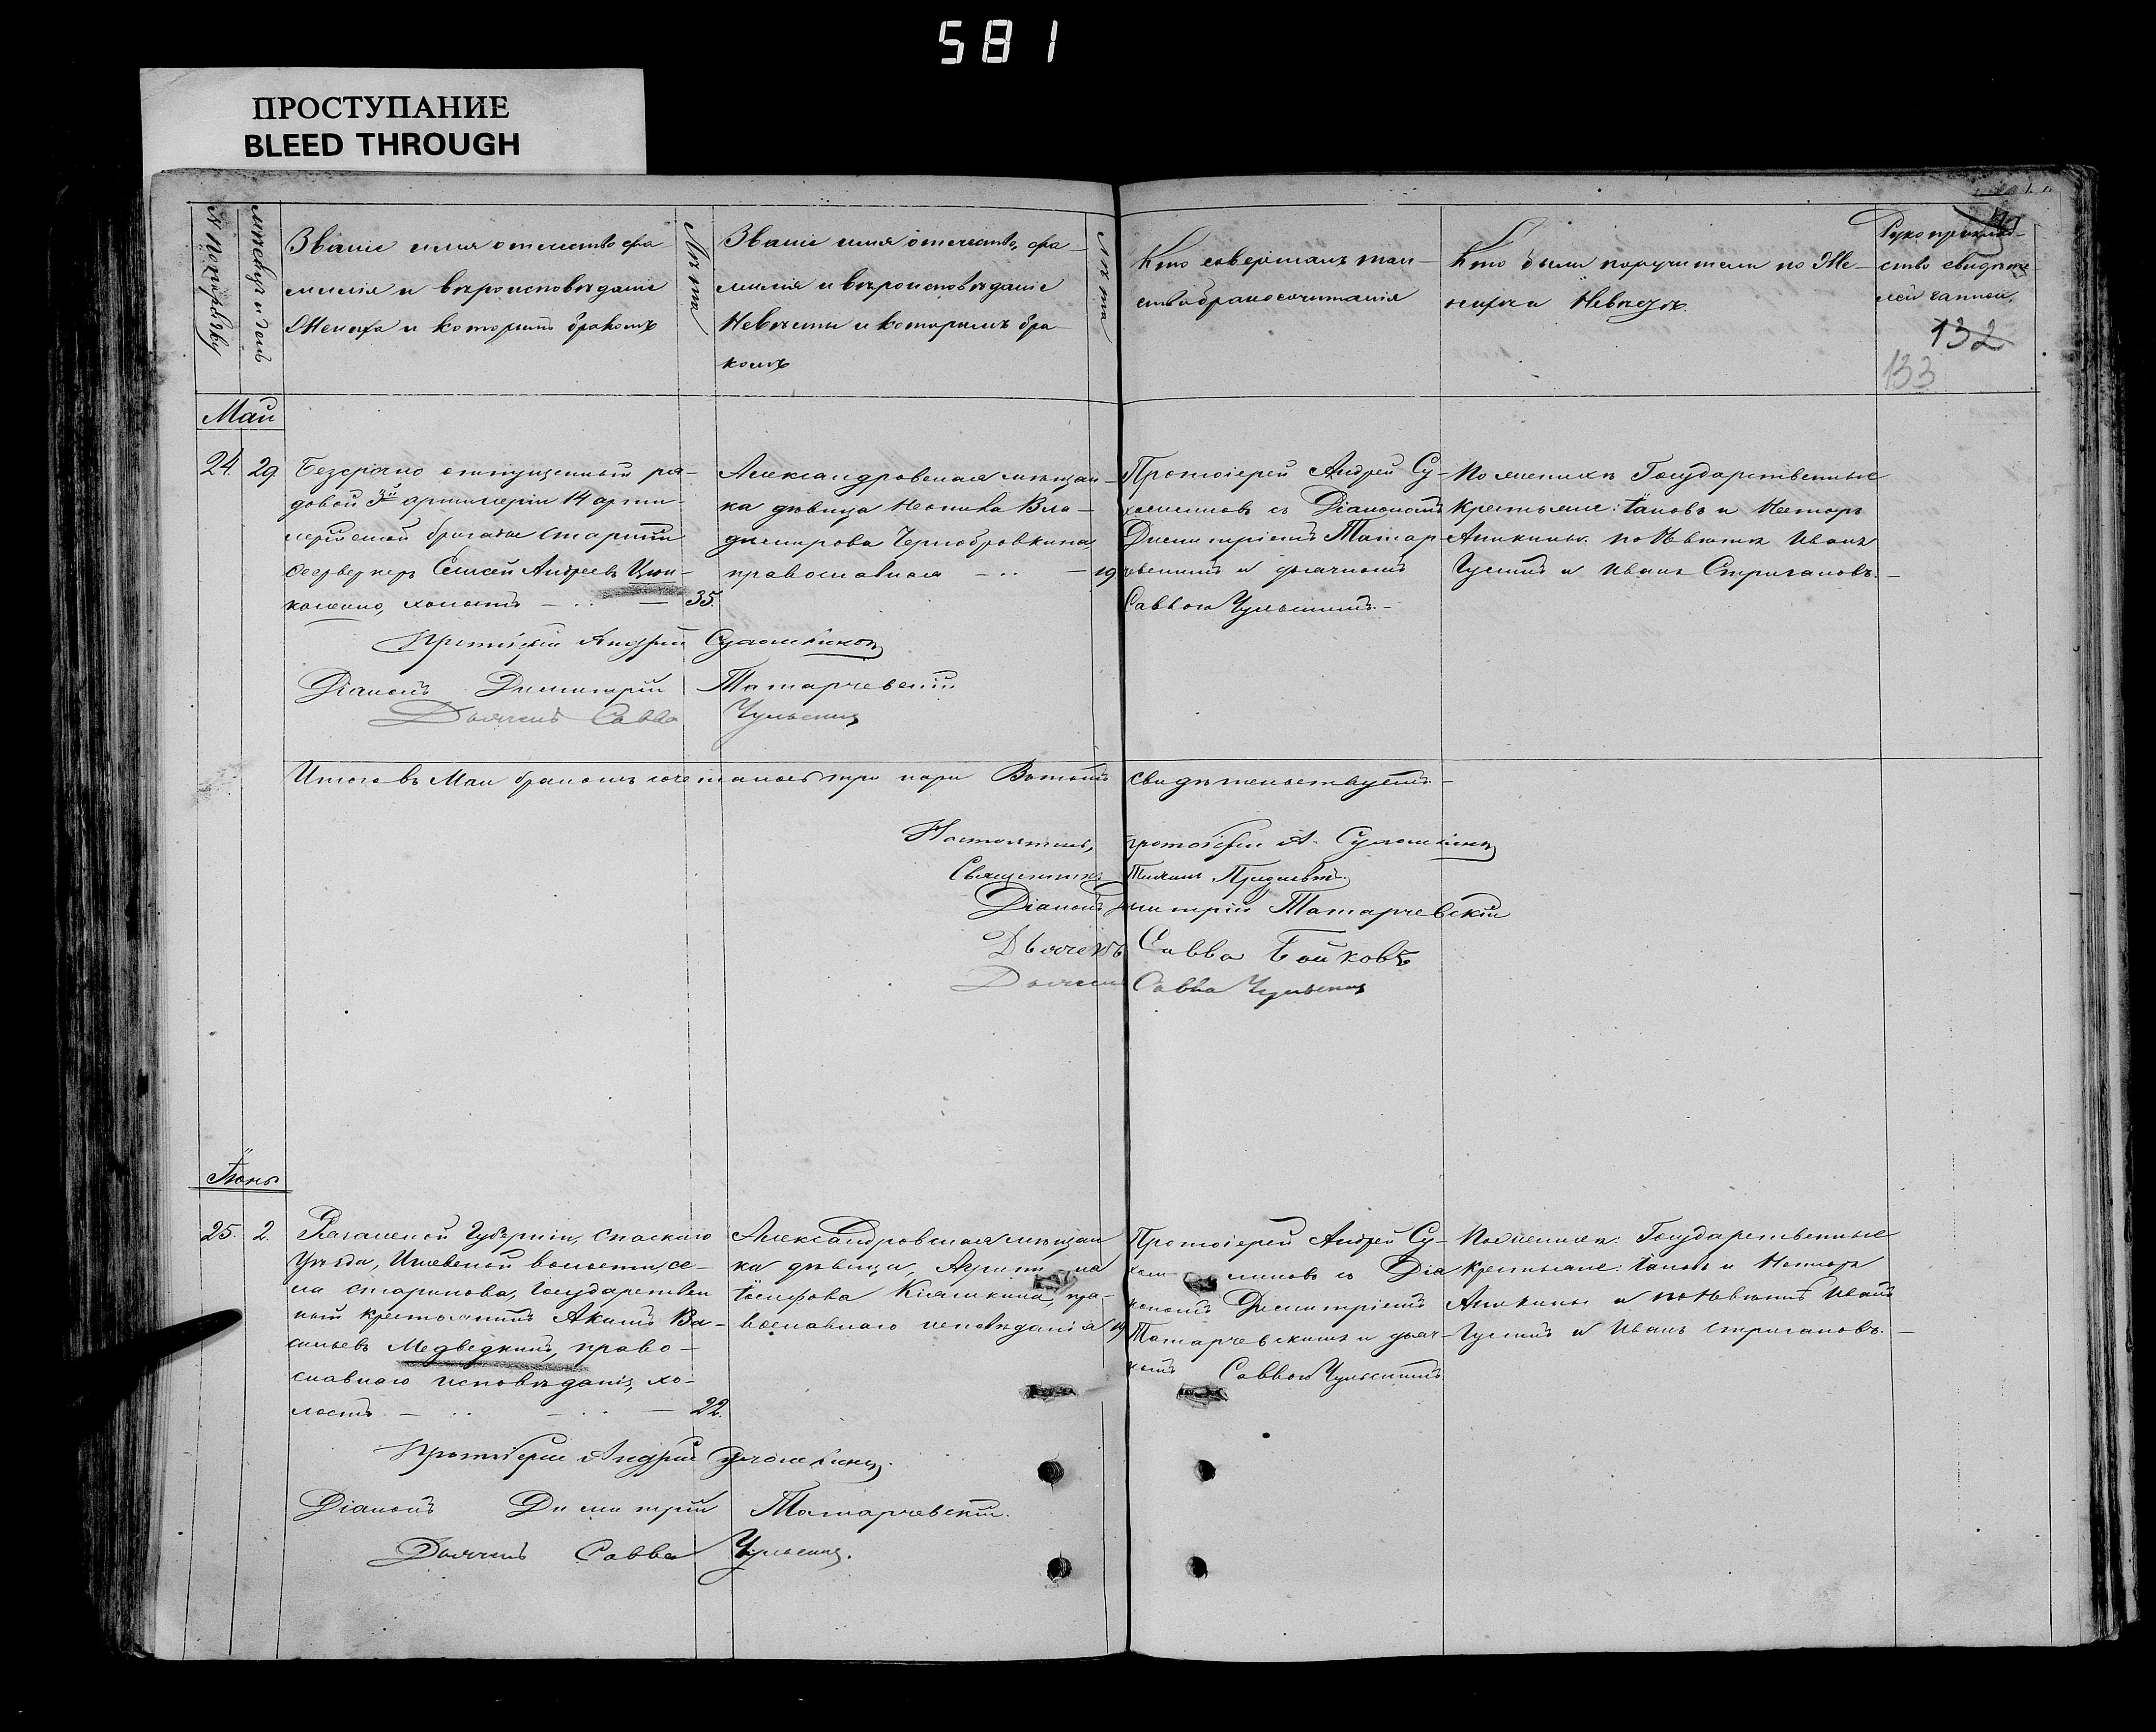 581
ПРОСТУПАНИЕ
BLEED THROUGH
№ по порядку
мѣсяцъ и день
Званіе имя отечество фа-
милія и вѣроисповѣданіе
Жениха и которымъ бракомъ
Лѣта
Званіе имя отечество, фа-
милія и вѣроисповѣданіе
Невѣсты и которымъ бра-
комъ
Лѣта
Кто совершалъ таин-
ство бракосочитанія
Кто были поручители по Же-
нихѣ и Невѣстѣ.
Рукоприклад-
ство свидѣте
лей записи.
132
133
Май
24. 29.
Безсрочно отпущенный ря-
довой 3й артилеріи 14 арти-
лерійской бригады старшій
Андреевъ Цюп-
холостъ 35.
Александровская мѣщан-
ка дѣвица Неонила Вла-
димирова Чернобровкина,
православная 19
Протоіерей Андрей Су-
хомлиновъ съ Діакономъ
Димитріемъ Татар-
чевскимъ и дьячкомъ
Саввою Чульскимъ.
По женихѣ Государственные
крестьяне: Іаковъ и Несторъ
Аникины. по Невѣстѣ Иванъ
Гусевъ и Иванъ Стригановъ.
Протоіерей Андрей Сухомлиновъ
Діаконъ Димитрій Татарчевскій
Дьячокъ Савва Чульскій
Итого въ Маи бракомъ сочеталось три пари Въ томъ свидѣтельствуемъ.
Настоятель, протоіерей А. Сухомлиновъ
Священникъ
Діаконъ Димитрій Татарчевскій
Дьячекъ Савва Бойковъ
Дьячокъ Савва Чульскій
Іюнь
25. 2.
Казанской Губерніи, Спаскаго
Уѣзда, волости, се-
ла старикова, Государствен
ный крестьянинъ Акимъ Ва-
сильевъ Медведкинъ, право-
славнаго исповѣданія, хо-
лостъ 22.
Александровская мѣщан
ка дѣвица,
Іосифова Клашкина, пра-
вославнаго исповѣданія 19
Протоіерей Андрей Су-
хомлиновъ съ Діа
кономъ Димитріемъ
Татарчевскимъ и дьяч-
комъ Саввою Чульскимъ.
По женихѣ: Государственные
крестьяне: Іаковъ и Несторъ
Аникины и по Невѣстѣ Иванъ
Гусевъ и Иванъ Стригановъ.
Протоіерей Андрей Сухомлиновъ.
Діаконъ Димитрій Татарчевскій.
Дьячокъ Савва Чульскій.